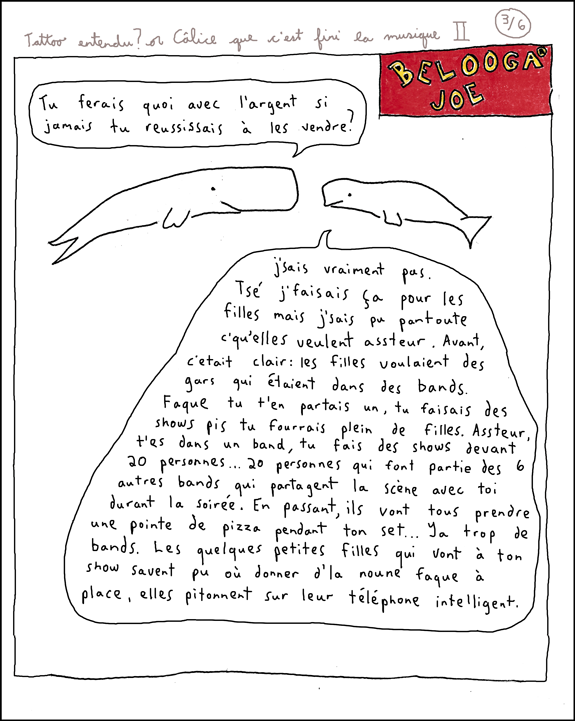 Tattoo entendu? ou Câlice que c'est fini la musique II
3/6
BELOOGA
JOE
Tu ferais quoi avec l'argent si
jamais tu reussissais à les vendre?
j'sais vraiment pas.
Tsé j'faisais ça pour les
filles mais j'sais pu pantoute
c'qu'elles veulent assteur. Avant,
c'etait clair: les filles voulaient des
gars qui étaient dans des bands.
Faque tu t'en partais un, tu faisais des
shows pis tu fourrais plein de filles. Assteur,
t'es dans un band, tu fais des shows devant
20 personnes... 20 personnes qui font partie des 6
autres bands qui partagent la scène avec toi
durant la soirée. En passant, ils vont tous prendre
une pointe de pizza pendant ton set... Ya trop de
bands. Les quelques petites filles qui vont à ton
show savent pu où donner d'la noune faque à
place, elles pitonnent sur leur téléphone intelligent.